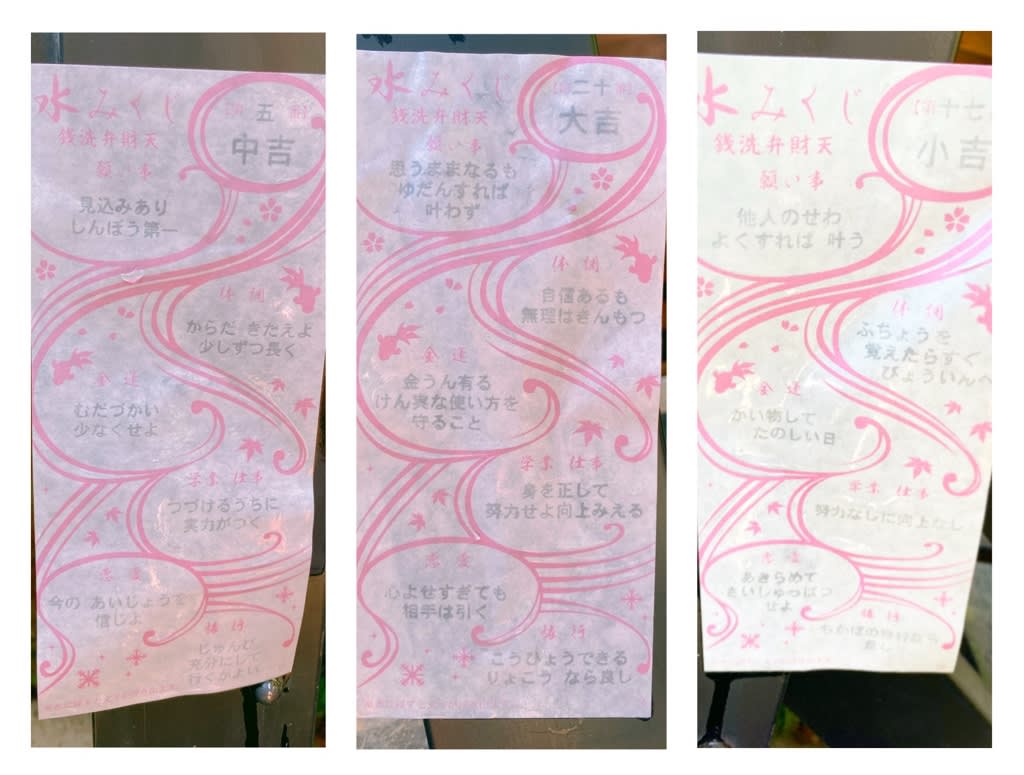 水みくじ
銭洗弁財天
第五番
中吉
願い事
見込みあり
しんぼう第一
体調
からだ きたえよ
少しずつ長く
金運
むだづかい
少なくせよ
学業 仕事
つづけるうちに
実力がつく
恋愛
今の あいじょうを
信じよ
旅行
じゅんび
充分にして
行くがよい
水みくじ
銭洗弁財天
第二十番
大吉
願い事
思うままなるも
ゆだんすれば
叶わず
体調
自信あるも
無理はきんもつ
金運
金うん有る
けん実な使い方を
守ること
学業 仕事
身を正して
努力せよ向上みえる
恋愛
心よせすぎても
相手は引く
旅行
こうひょうできる
りょこう なら良し
水みくじ
銭洗弁財天
第十七
小吉
願い事
他人のせわ
よくすれば 叶う
体調
ふちょうを
覚えたらすぐ
びょういんへ
金運
かい物して
たのしい日
学業 仕事
努力なしに向上なし
恋愛
あきらめて
さいしゅっぱつ
せよ
旅行